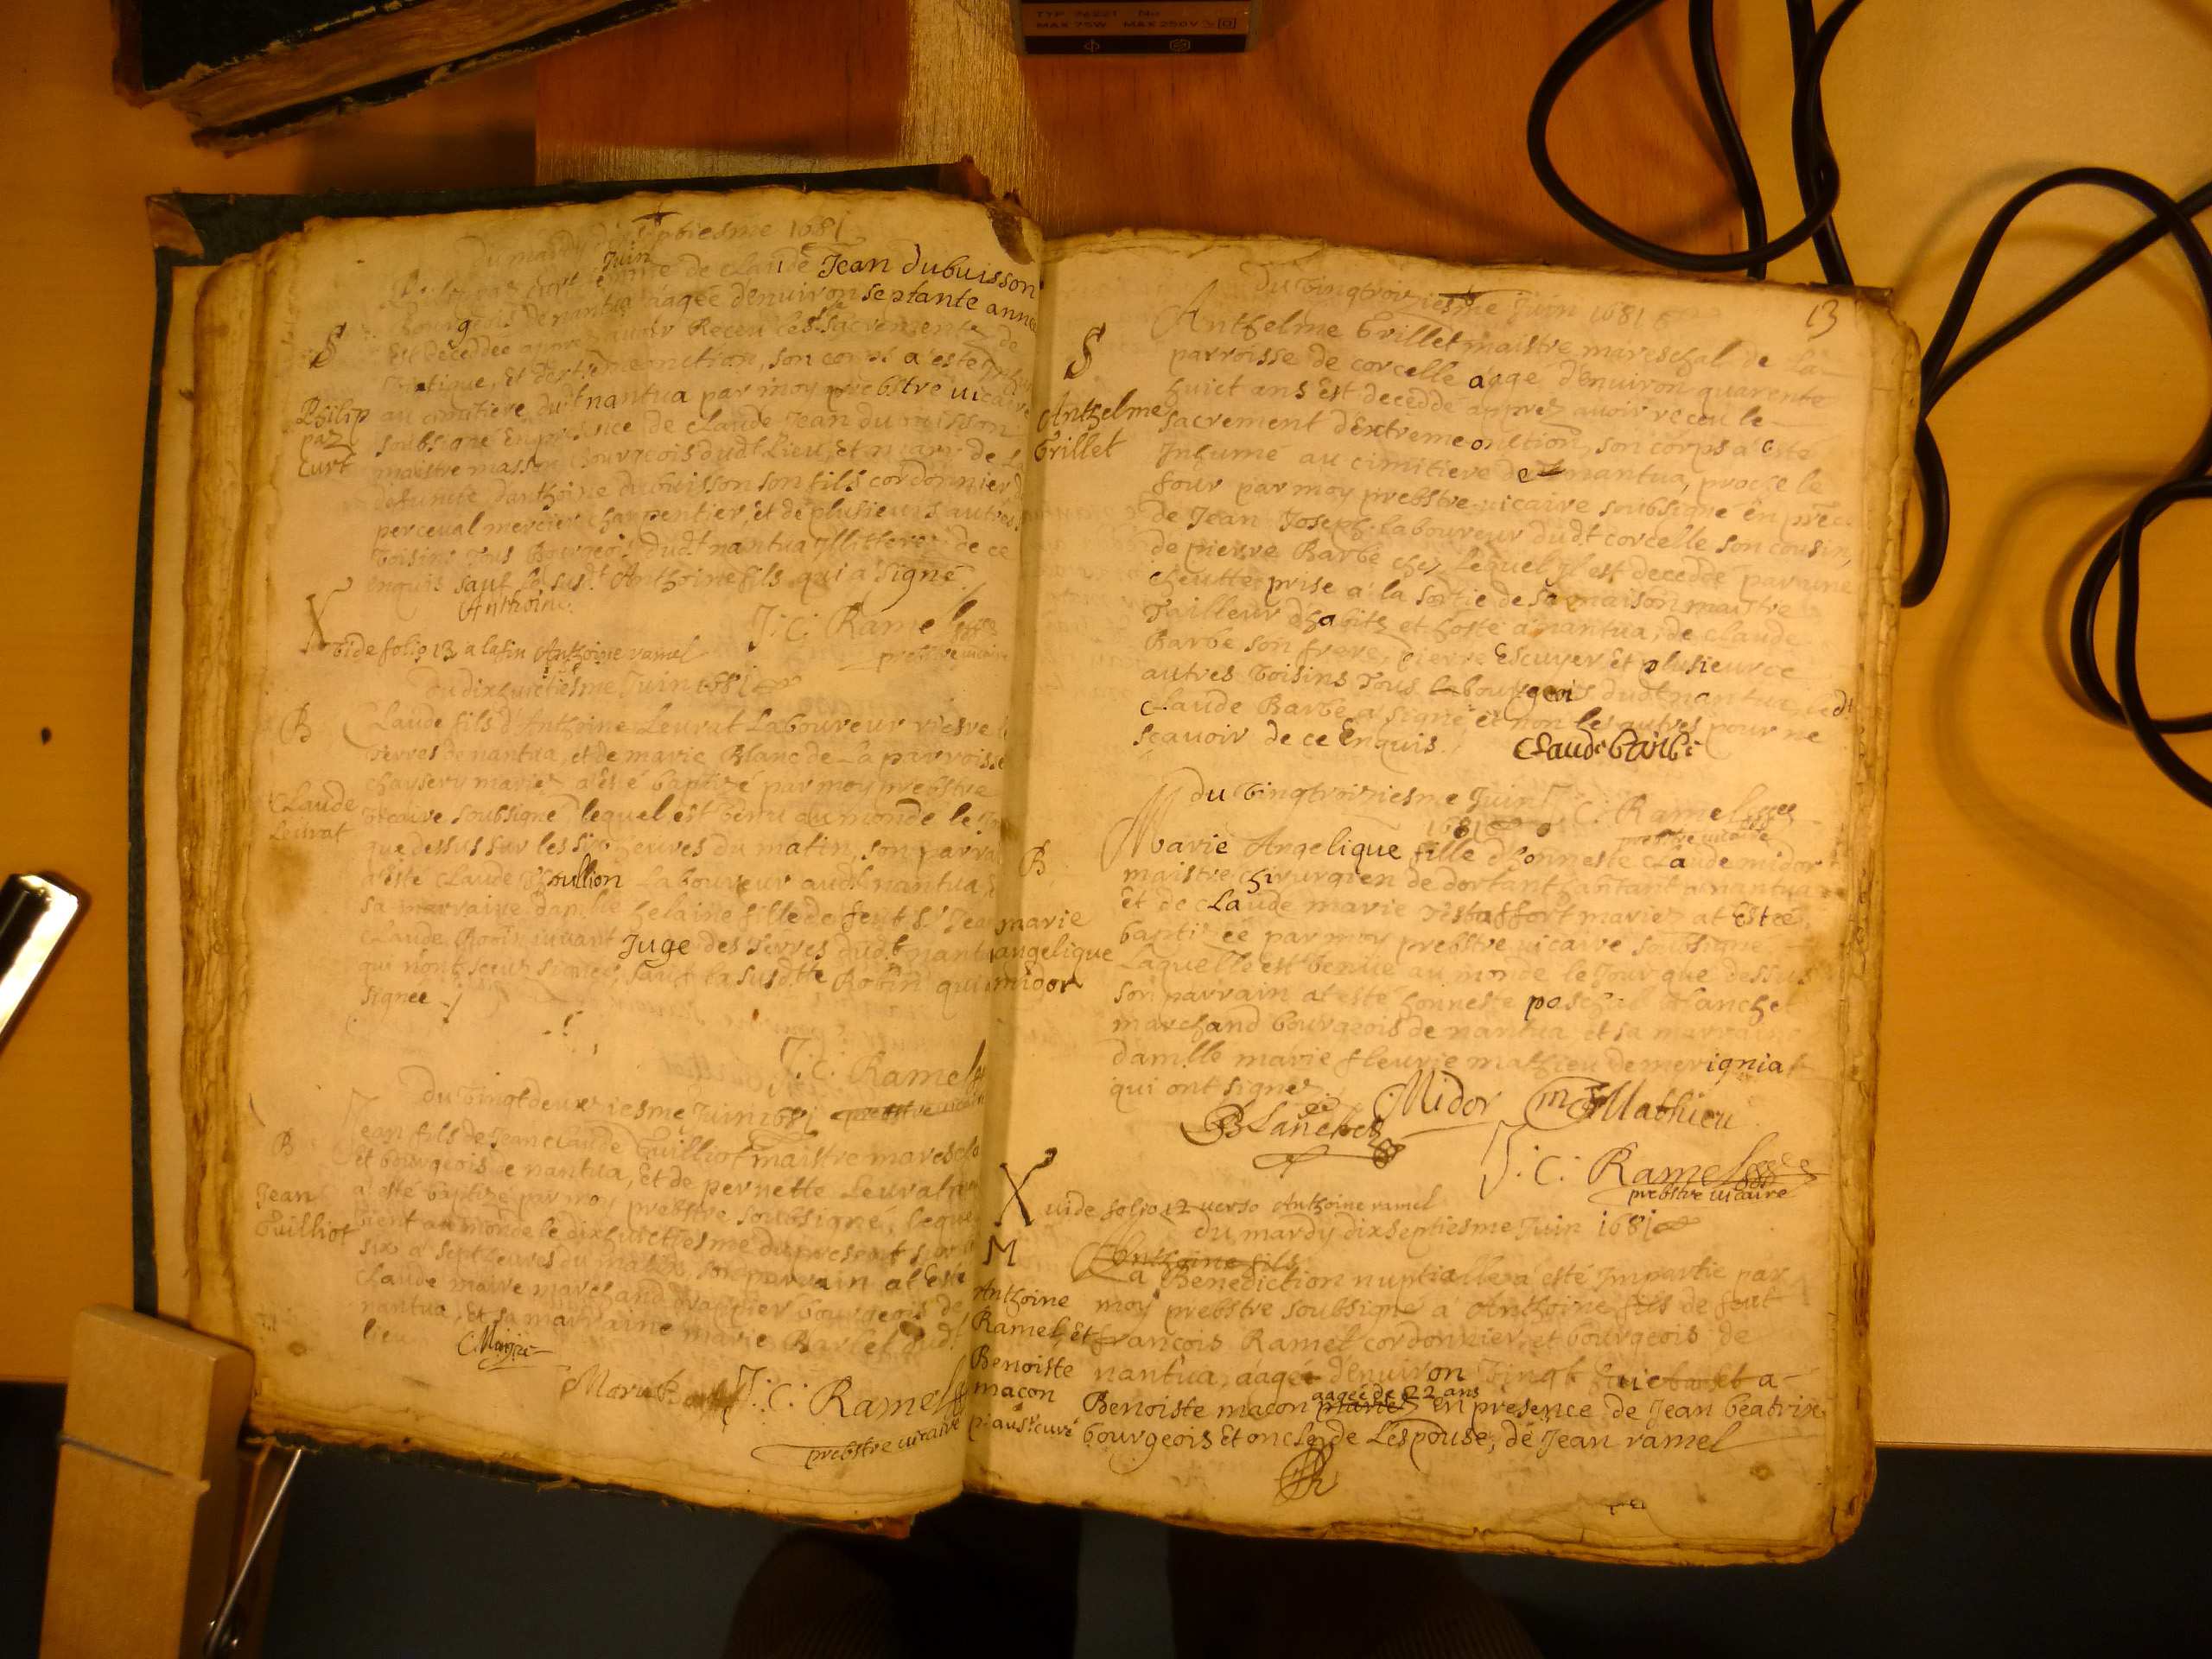 TYP 76221 No
MAX 75W MAX 250V
du mardy dixseptiesme Juin 1681
femme de claude Jean dubuisson
bourgeois de nantua aagée denuiron septante anne
Est decedée apprez auoir Receu les Sts sacrements de
onction, son corps a esté
S
Philip
paz
Curt
au cimitiere dudt nantua par moy prebstre uicaire
soubsigné En presence de claude Jean dubuisson
maistre masson bourgeois dudt Lieu, et mary de La
defuncte, danthoine dubuisson son fils cordonnier
perceual mercier charpentier, et de plusieurs autres
voisins tous Bourgeois dudt nantua Illitterez de ce
enquis sauf le susdt Anthoine fils qui a signé
Anthoine
J: C: Ramel
prebstre uicaire
X
vide folio 13 a la fin Anthoine ramel
du dixhuictiesme Juin 1681
B
Claude fils d'Anthoine Leurat Laboureur riesre l
terres de nantua, et de marie Blanc de La parroisse
chaysery mariez a esté baptizé par moy prebstre
Claude
Leurat
vicaire soubsigné, lequel est venu au monde le
que dessus sur les six heures du matin, son parra
a esté claude Thoullion Laboureur audt nantua,
sa marraine damlle helaine fille de feut sr Jea
Claude Robin uiuant Juge des terres dudt nantu
qui n'ont sceu signer, sauf la susdtte Robin qui a
signée
J: C: Ramel
prebstre uicaire
du vingtdeuxiesme Juin 1681
B
Jean
Guilliot
Jean fils de Jean claude Guilliot maistre maresch
et bourgeois de nantua, Et de pernette Leurat
a esté baptizé par moy prebstre soubsigné, leque
vient au monde le dixhuictiesme du present sur
six a sept heures du matin, son parrain at esté
claude maire marchand drappier bourgeois de
nantua, Et sa marraine marie Barlet dudt
lieu
J: C: Ramel
prebstre uicaire
13
du vingtroiziesme Juin 1681
S
Anthelme
Grillet
Anthelme Grillet maistre mareschal de La
parroisse de corcelle aagé d'enuiron quarente
huict ans est decedé apprez auoir receu le
sacrement d'extreme onction, son corps a esté
Inhumé au cimitiere de nantua, proche le
four par moy prebstre uicaire soubsigné en prece
de Jean Joseph laboureur dudt corcelle son cousin,
de pierre Barbe chez lequel Jl est decedé par une
cheutte prise a la sortie de sa maison maistre
Tailleur d'habits et hoste a nantua, de claude
Barbe son frere, pierre Escuyer et plusieurce
autres voisins tous bourgeois dudt nantua, ledt
claude Barbe a signé et non les autres pour ne
scauoir de ce Enquis.
Claude barbe
du vingtroiziesme Juin
1681
J: C: Ramel
prebstre uicaire
B
marie
angelique
midor
Marie Angelique fille d'honneste claude midor
maistre chirurgien de dortant habitant a nantua
et de claude marie Testaffort mariez at Estée
baptizée par moy prebstre uicaire soubsigné
Laquelle est venue au monde le Jour que dessus
son parrain at esté honneste paschal Blanchet
marchand bourgeois de nantua et sa marraine
damlle marie fleurie mathieu de merigniat
qui ont signez
Blanchet
Midor
m f Mathieu
J: C: Ramel
prebstre uicaire
X
uide folio 12 uerso Anthoine ramel
du mardy dixseptiesme Juin 1681
M
Anthoine fils
La Benediction nuptialle a esté Impartie par
Anthoine
Ramel, et
Benoiste
macon
moy prebstre soubsigné a Anthoine fils de feut
françois Ramel cordonnier et bourgeois de
nantua, aagé denuiron vingt huic a
aagée de 22 ans
Benoiste macon mariez en presence de Jean beatrix
bourgeois et oncle de L'espouse, de Jean ramel